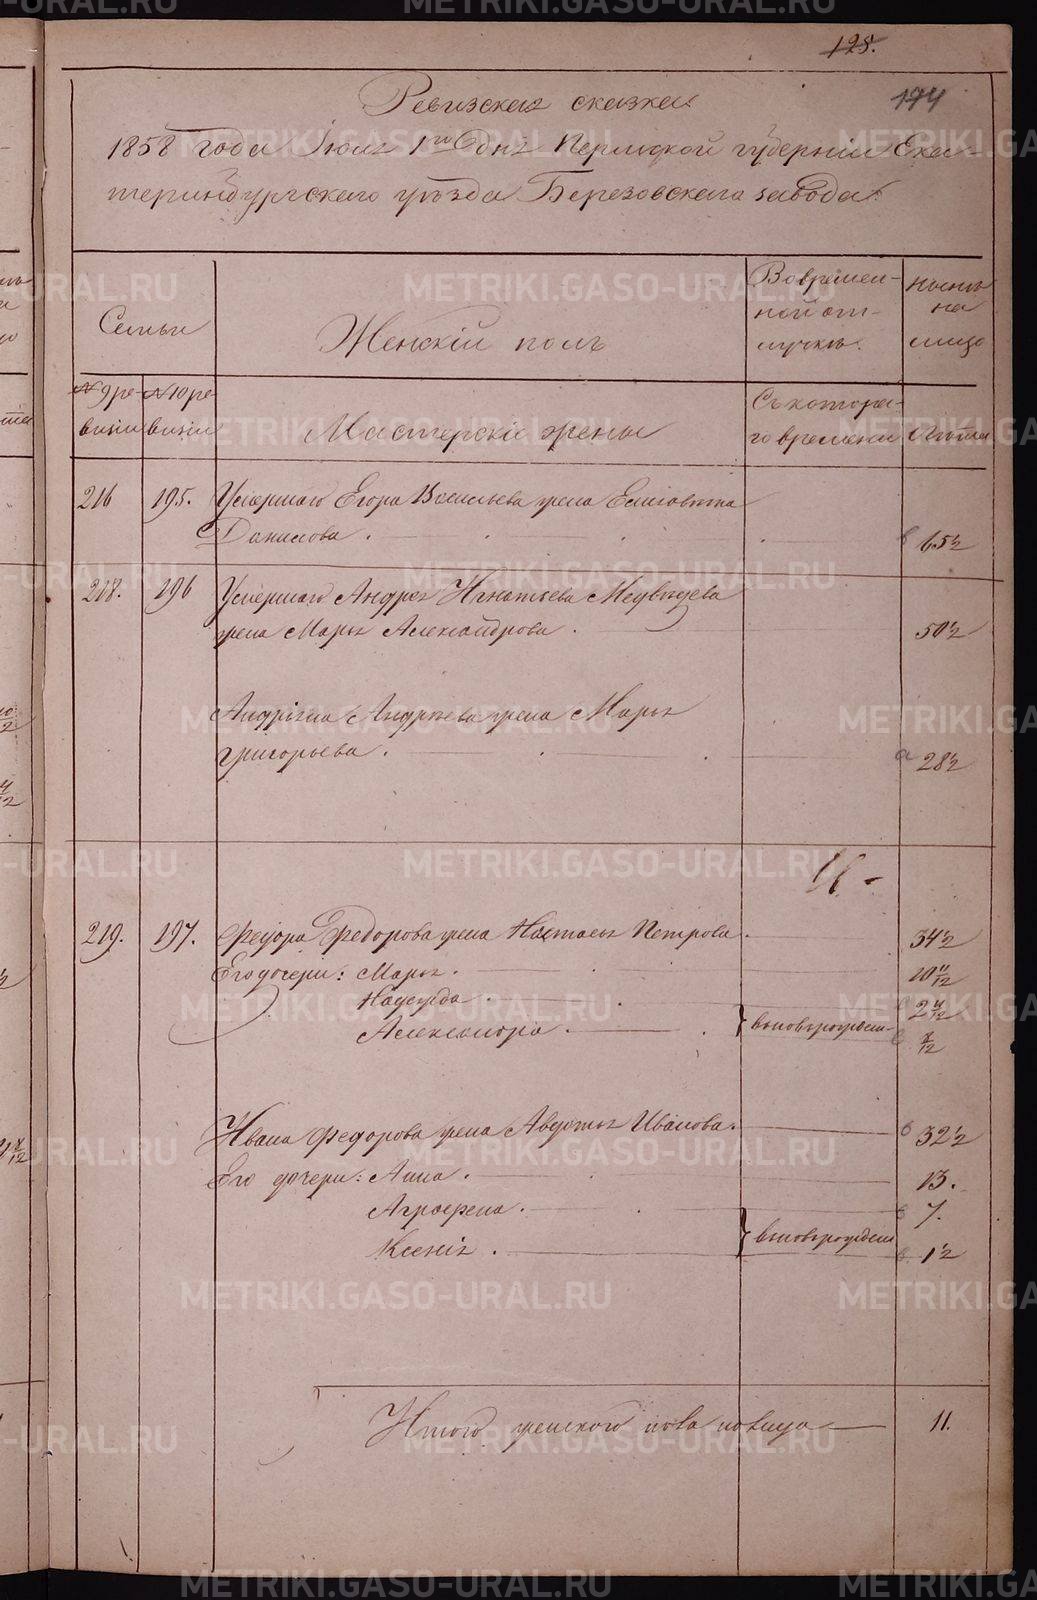 125.
194
Ревизская сказка
1858 года Июня 1го дня Пермской губернии Ека-
теринбургскаго уѣзда Березовскаго завода.
Семьи
Женскій полъ
Во времен-
ной от-
лучкѣ.
Нынѣ
на
лицо
№ 9 ре-
визіи
№ 10 ре
визіи
Мастерскіе жены
Съ котора-
го времени
Лѣта
216 195. Умершаго Егора Васильева жена Елизавета
Данилова . 65 1/2
218. 196 Умершаго Андрея Игнатьева Медвѣдева
жена Марья Александрова . 50 1/2
Андреяна Андреева жена Марья
Григорьева . 28 1/2
219. 197. Федора Федорова жена Настасья Петрова 34 1/2
Его дочери: Марья . 10 11/12
Надежда
Александра вновьрожден-
Ивана Федорова жена Авдотья Иванова. 32 1/2
Его дочери: Анна . 13.
Аграфена . 7.
Ксенія . вновьрожден 1 1/2
Итого женского пола на лицо 11.
METRIKI.GASO-URAL.RU